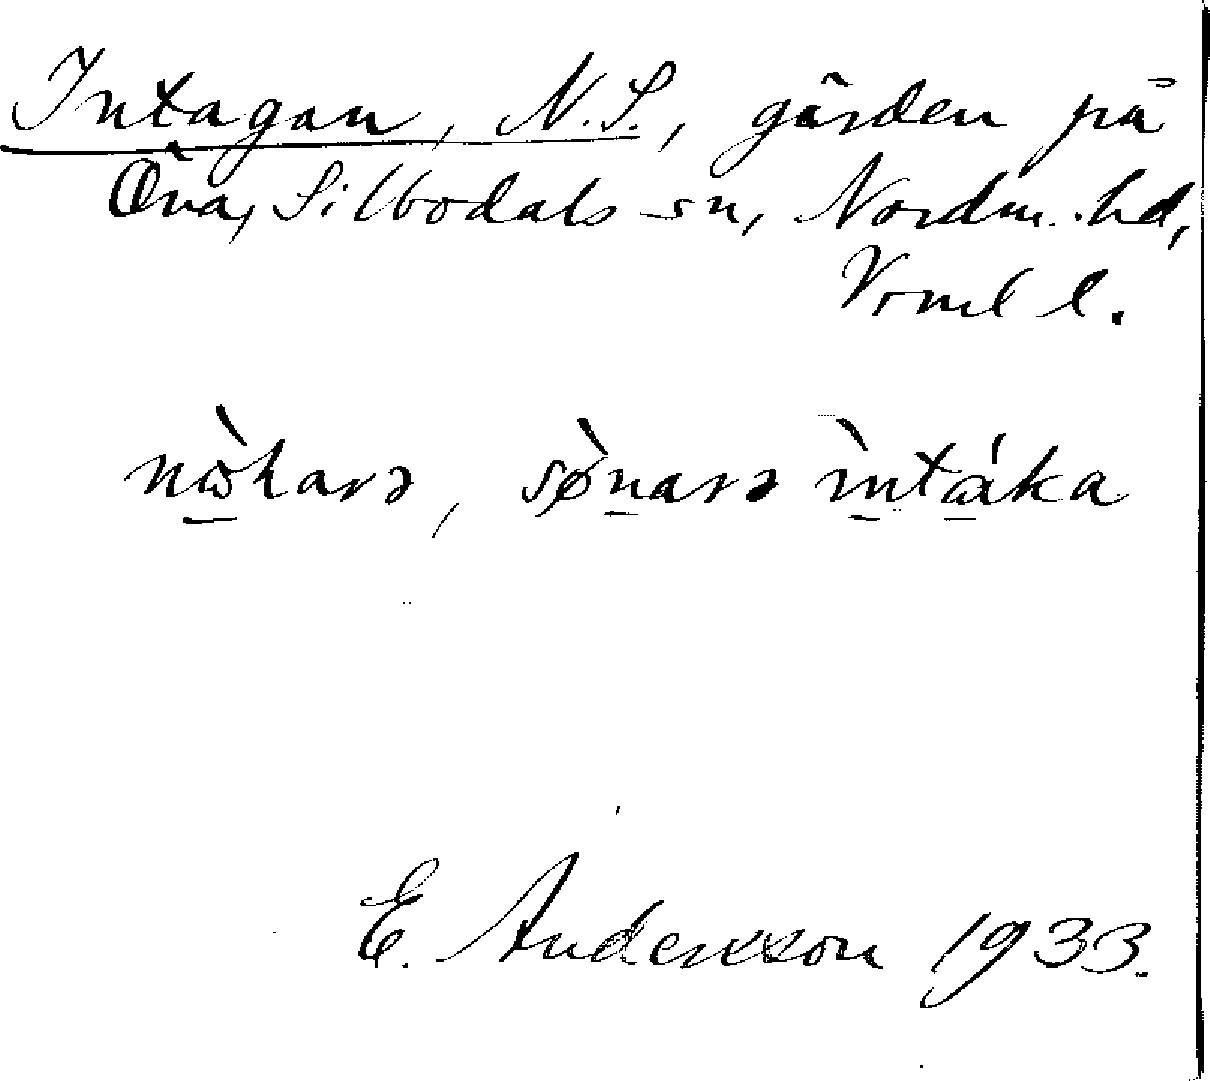 Intagan, N. S., gården på
Öna, Silbodals sn, Nordm. hd,
Vrml l.
nꞷ̀harə, sø̀narə ìntáka
E. Andersson 1933.